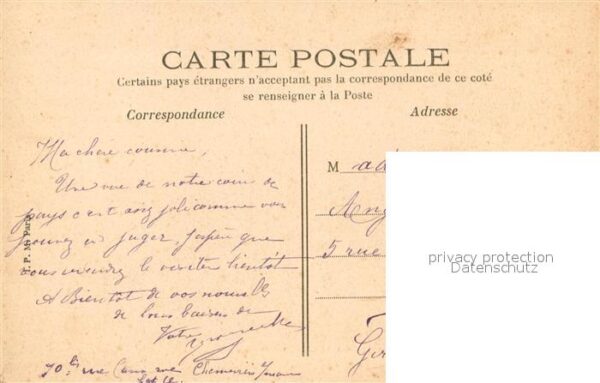 CARTE POSTALE
Certains pays étrangers n'acceptant pas la correspondance de ce coté
se renseigner à la Poste
Correspondance
Adresse
Ma chere cousine,
Une vue de notre coin de
pays c'est joli comme vous
pouvez en juger. J'espère que
vous viendrez le visiter bientôt
A Bientôt de vos nouvelles
de bons baisers de
Votre
rue
M ad
Ang
5 rue
P. MS Paris
privacy protection
Datenschutz